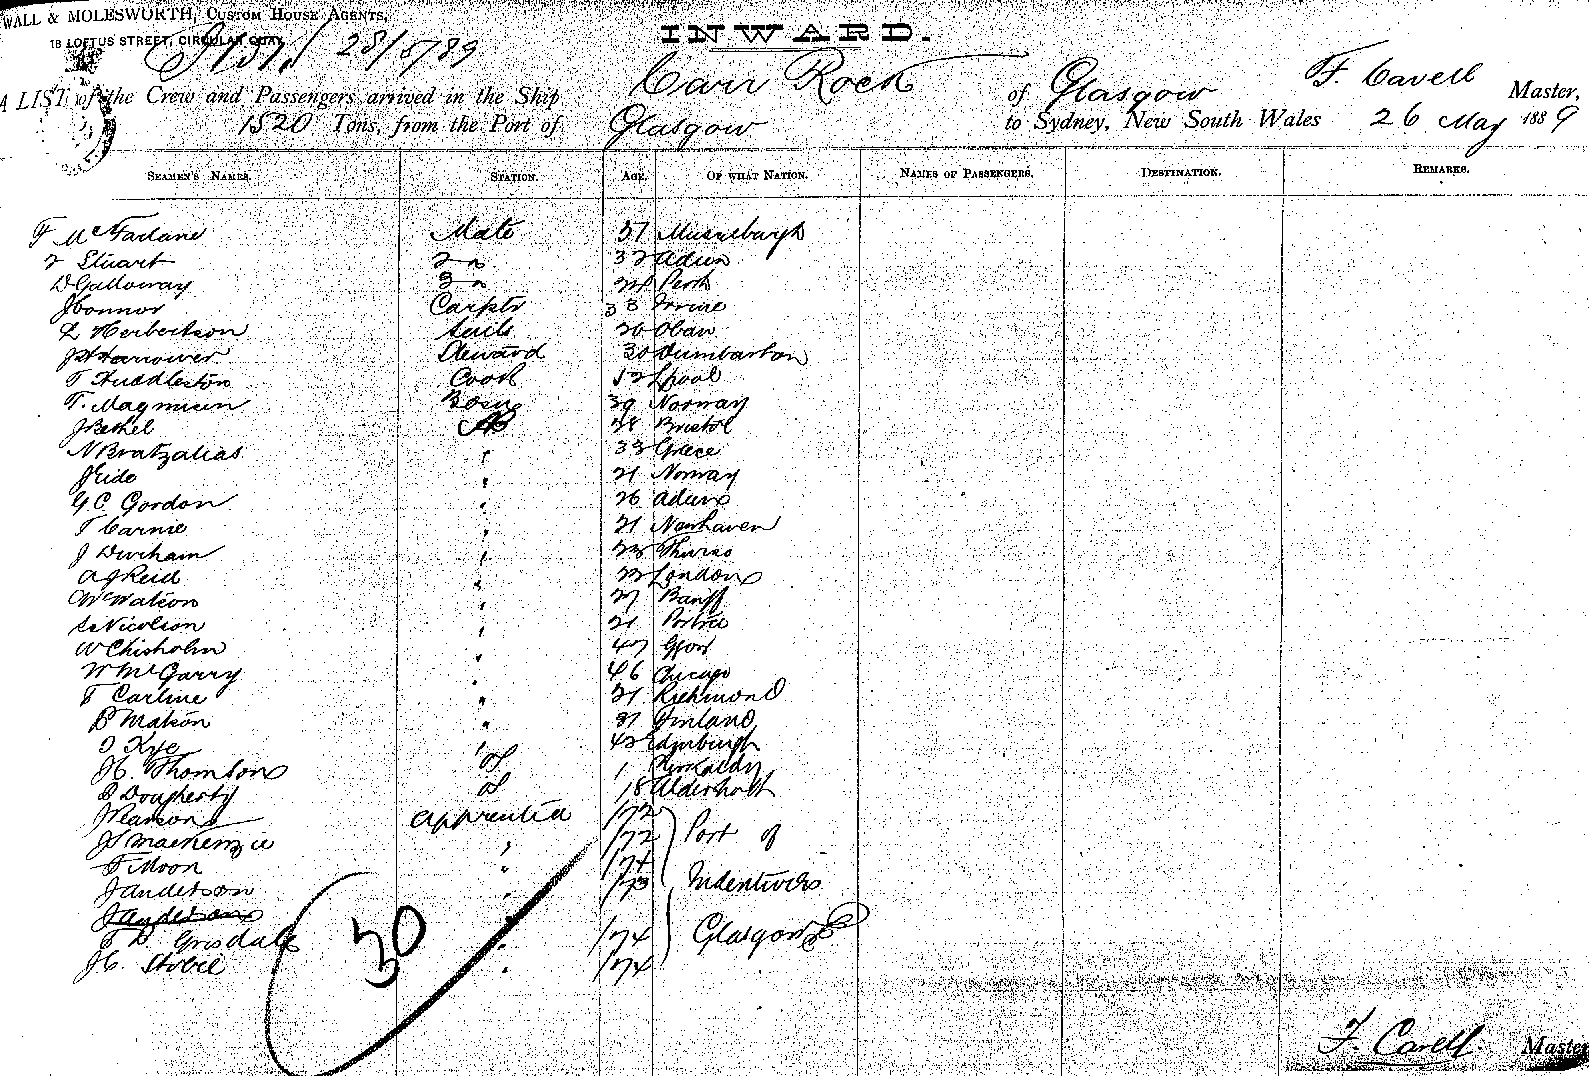 WALL & MOLESWORTH, CUSTOM HOUSE AGENTS,
18 LOFTUS STREET, CIRCULAR QUAY.
28/5/89
INWARD.
A LIST of the Crew and Passengers arrived in the Ship Carr Rock of Glasgow F. Cavell Master,
1520 Tons, from the Port of Glasgow to Sydney, New South Wales 26 May 1889
SEAMEN'S NAMES. STATION. AGE. OF WHAT NATION. NAMES OF PASSENGERS. DESTINATION. REMARKS.
F McFarlane Mate 37 Musselburgh
Stuart 2 " 32
D Galloway 3 " Perth
J Connor Carptr 38 Irvine
Herbertson Sails 26 Oban
Steward 30 Dumbarton
T Huddleston Cook 52 Lpool
T. Magnusen Bosn 39 Norway
J Bethel AB 28 Bristol
N Bratzalias " 33 Greece
J Eide " 21 Norway
G C Gordon " 26
T Carnie " 21 Newhaven
J Durham " Thurso
A J Reid " London
W Watson " 27 Banff
Nicolson " 21 Portree
W Chisholm " 47 Gow
W McGarry " 46 Chicago
T Carline " 21 Richmond
Matson " 37 Finland
Kye " 42 Edinburgh
Thomson OS Kirkcaldy
Dougherty OS 18
J Pearson apprentice
J S Mackenzie " Port of
F Moon "
J Anderson " Indentures
J Anderson
Grisdale " Glasgow
Stobie "
30
F. Cavell Master